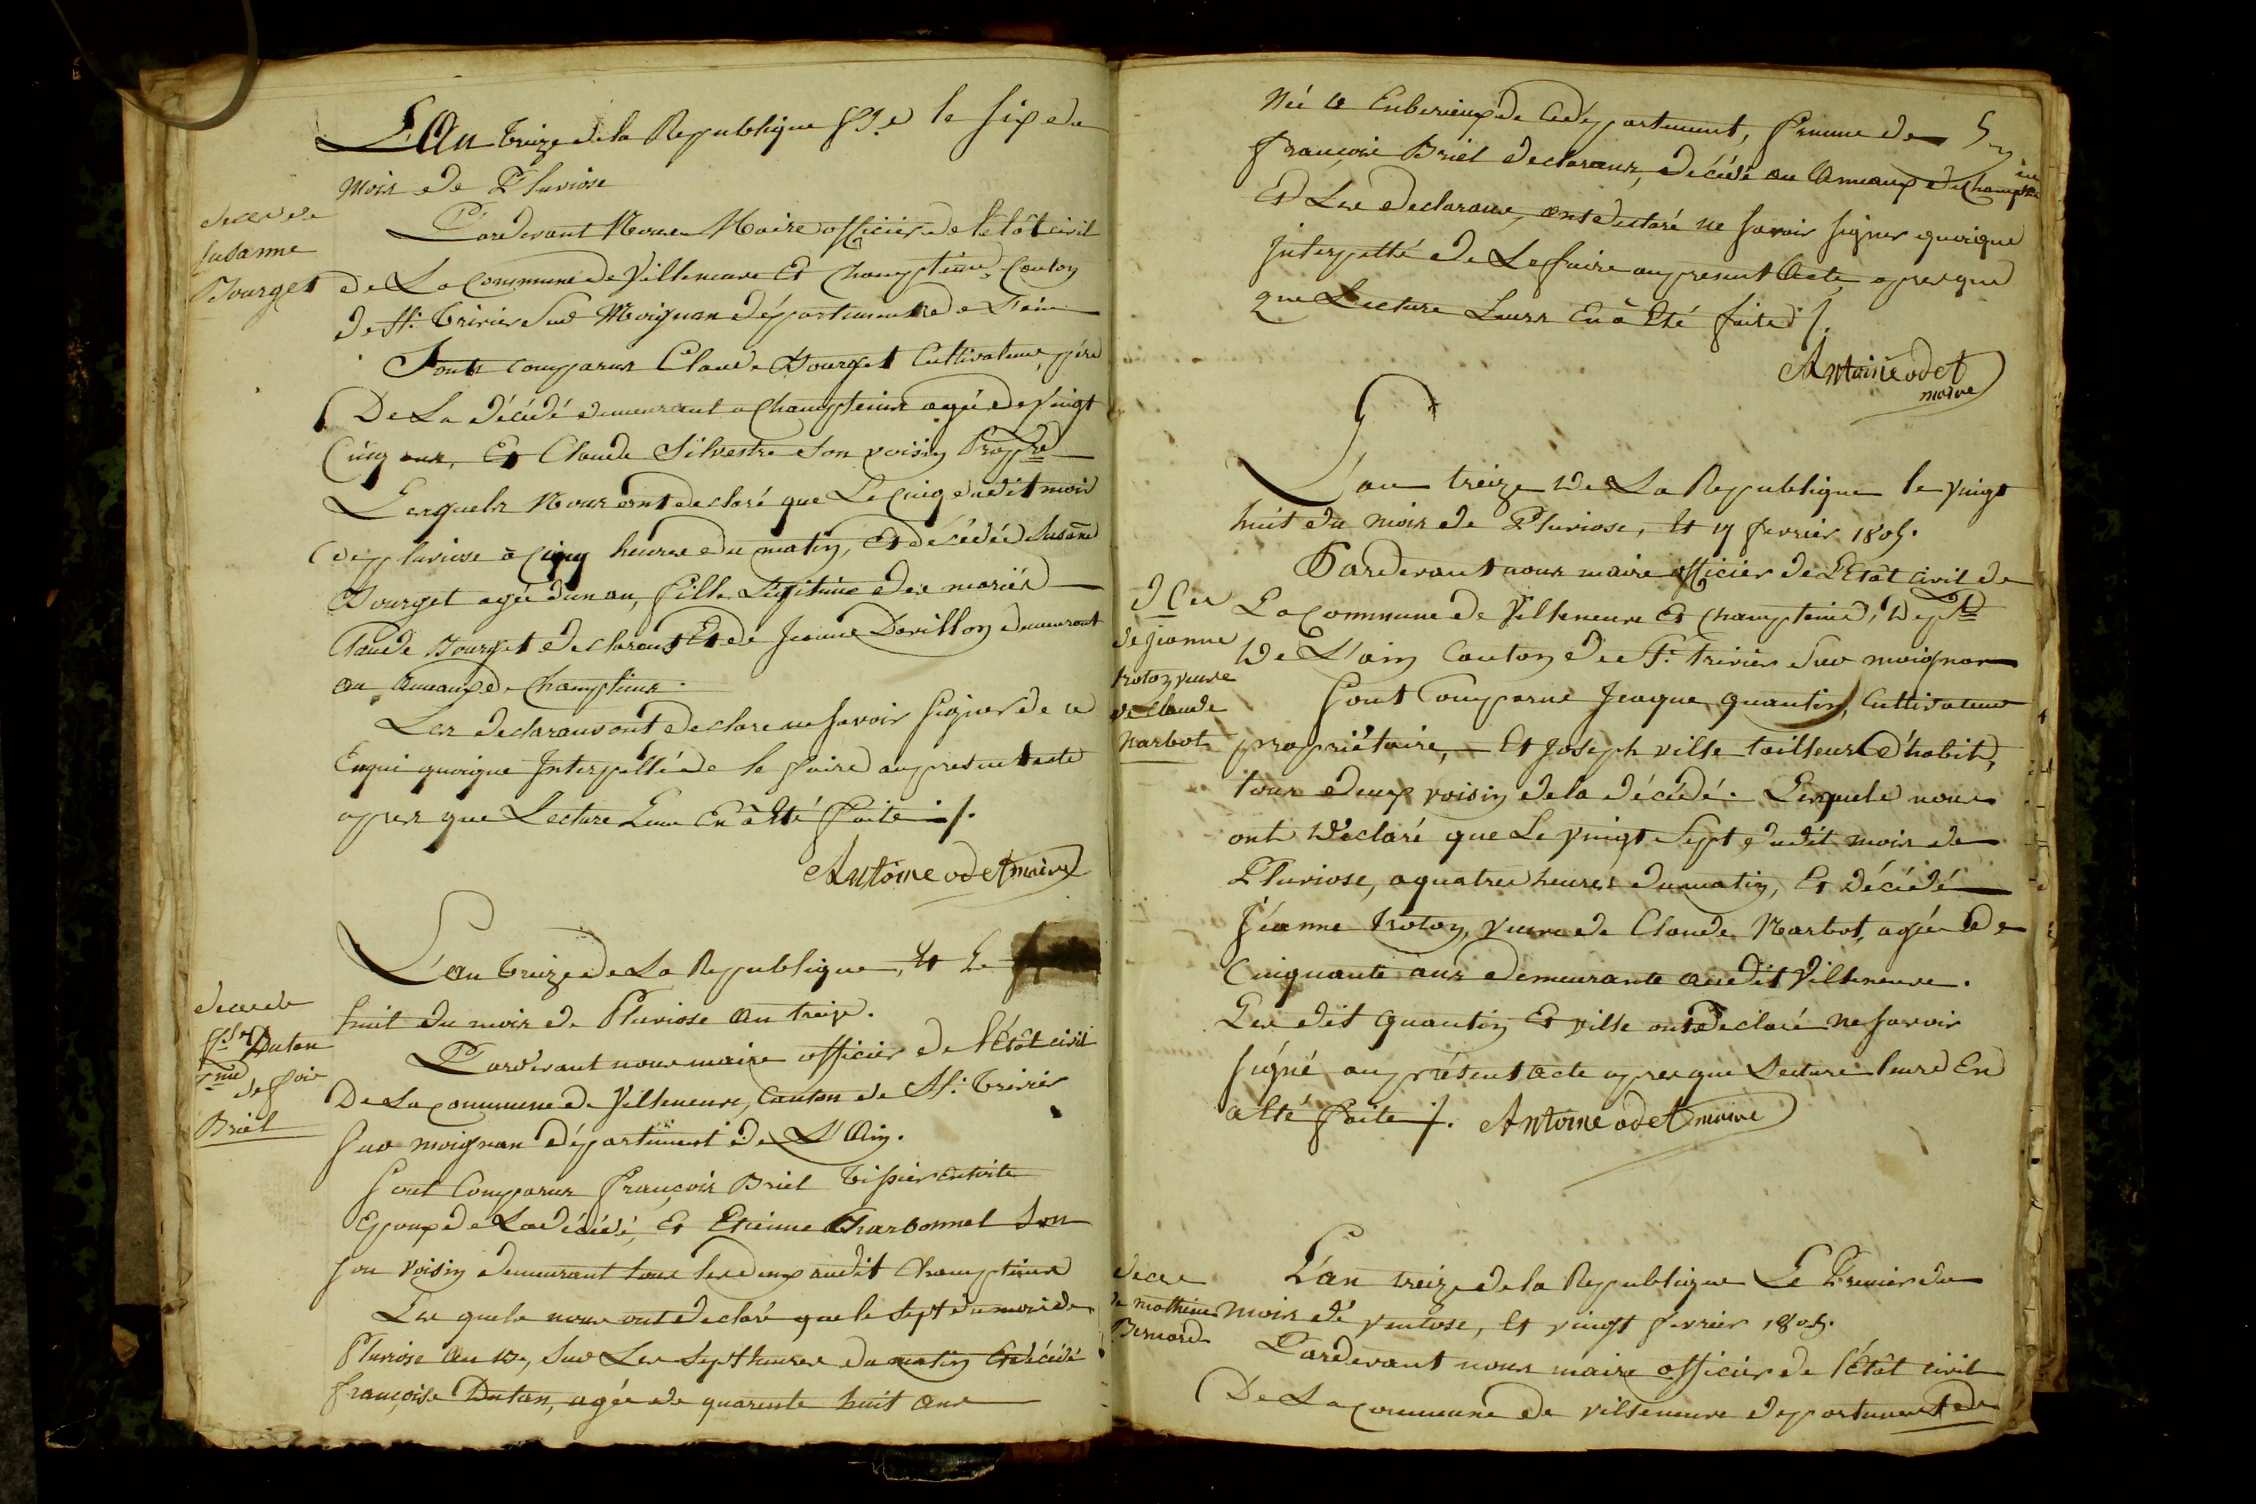 L'An treize de la Republique se le six du
mois de Pluviose
deces de
Susanne
Bourget
Pardevant Nous Maire officier de l'etât civil
de La Commune de Villeneuve Et Champteins, Canton
de St. Trivier Sur Moignan département de L'ain
Sont comparus Claude Bourget Cultivateur, père
De La décédé demeurant a Champteins agée de vingt
Cinq ans, Et Claude Silvestre Son voisin Proppre
Lesquels Nous ont declaré que Le Cinq dudit mois
de pluviose a Cinq heures du matin, Est décédée Susane
Bourget agée dun an, fille Legitime des mariés
Claude Bourget declarant Et de Jeanne Devillon demeurant
au hameaux de Champteins.
Les declarans ont declare ne savoir signer de ce
Enqui quoique Interpellé de le faire au present acte
apres que Lecture Leur En à Eté faite ./.
Antoine odet maire
L'an treize de La Republique, Et Le
huit du mois de Pluviose an treize.
deces de
fse Dutan
fme de fois
Briel
Pardevant nous maire officier de l'Etât civil
De La commune de Villeneuve, Canton de St. Trivier
sur moignan département de L'Ain.
Sont Comparus François Briel Tissier entoile
Epoux de La décédé, Et Etienne Charbonnel Son
son voisin demeurant tous les deux audit Champteins
Les quels nous ont declaré que le sept du mois de
Pluviose an 13, Sur Les Sept heures du matin Est décédé
françoise Dutan, agée de quarente huit ans
Née a Enberieux de Ce département, femme de
françois Briel declarans, décédé au hameaux de Champteins
Et Les declarans, ont declaré ne savoir signer quoique
Interpellé de Le faire au present Acte, apres que
que Lecture Leurs En à Eté faite ./.
Antoine odet
maire
L'an treize de La Republique le vingt
huit du mois de Pluviose, Et 17 fevrier 1805.
Pardevant nous maire officier de L'Etât civil de
La Commune de Villeneuve Et Champteins, Dept
De L'ain Canton de St. Trivier Sur moignan
dces
de jeanne
troton veuve
de Claude
Narbot
Sont Comparus Jeaque quantin, Cultivateur
propriétaire, Et Joseph ville tailleur d'habit,
tous deux voisin de la décédé. Lesquels nous
ont Declaré que Le vingt Sept dudit mois de
Pluviose, a quatre heures du matin, Est décédé
Jéanne troton, veuve de Claude Narbot, agée de
Cinquante ans demeurante audit Villeneuve.
Les dit quantin Et ville ont declaré ne savoir
signé au présent acte apres que Lecture leurs En
a Eté faite ./. Antoine odet maire
deces
de mathieu
Bernard
L'an treize de la Republique Le Premier du
mois de ventose, Et vingt fevrier 1805.
Pardevant nous maire officier de l'Etât civil
De La commune de villeneuve departement de